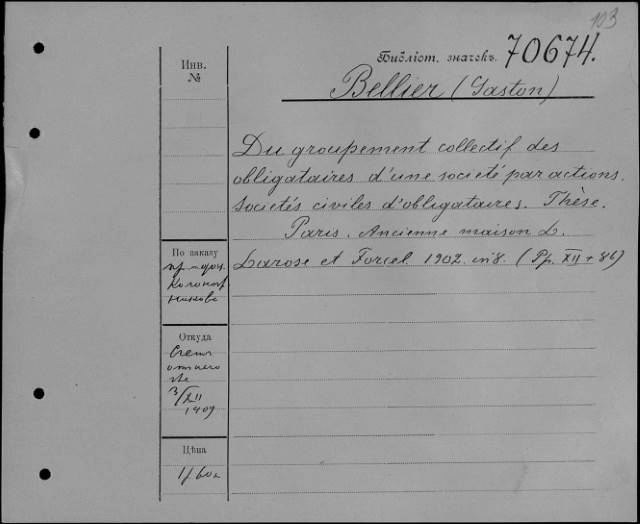 103
Библіот. значекъ. 70674.
Bellier (Gaston)
Инв.
№
Du groupement collectif des
obligataires d'une societé par actions.
Societés civiles d'obligataires. Thèse.
Paris. Ancienne maison L.
Larose et Forcel. 1902. in 8. (Pp. XII + 86)
По заказу
Откуда
3/XII
1909
Цѣна